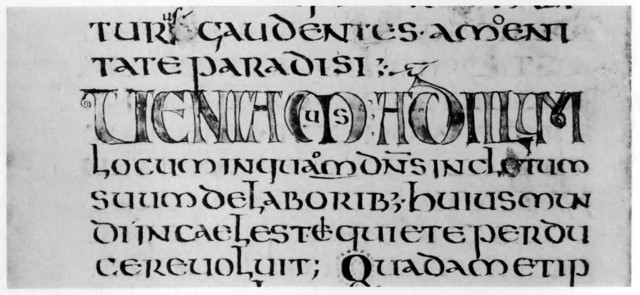 turi gaudentes·amoeni
tate paradisi;
UENIAMUS AD ILLUM
locum in quam dn̄s incletum
suum de laborib;·huius mun
di in caeleste quiete perdu
cere uoluit; Quadam etip